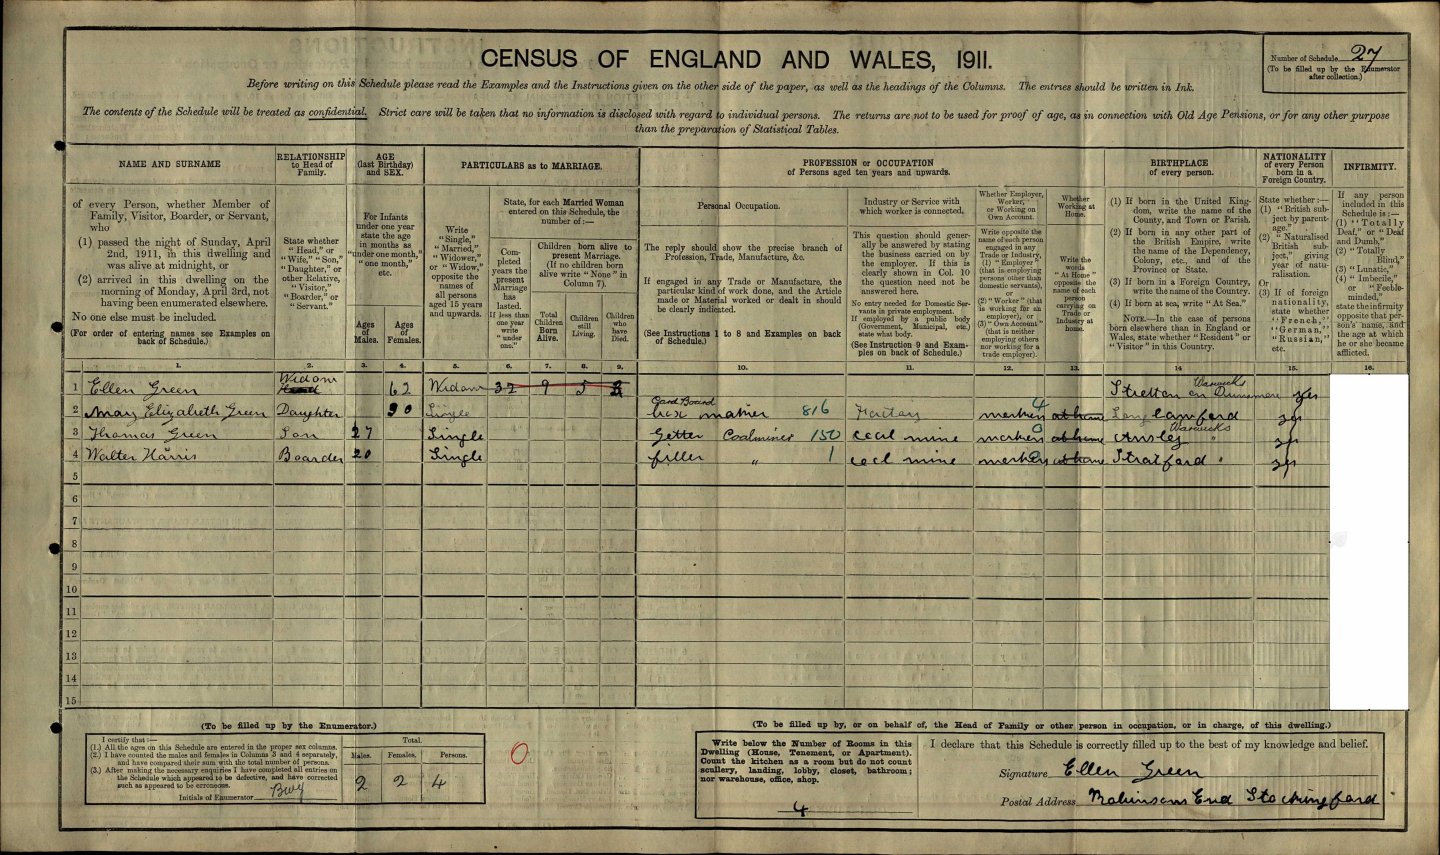 CENSUS OF ENGLAND AND WALES, 1911.
Number of Schedule 27
(To be filled up by the Enumerator after collection.)
Before writing on this Schedule please read the Examples and the Instructions given on the other side of the paper, as well as the headings of the Columns. The entries should be written in Ink.
The contents of the Schedule will be treated as confidential. Strict care will be taken that no information is disclosed with regard to individual persons. The returns are not to be used for proof of age, as in connection with Old Age Pensions, or for any other purpose
than the preparation of Statistical Tables.
NAME AND SURNAME
of every Person, whether Member of Family, Visitor, Boarder, or Servant, who
(1) passed the night of Sunday, April 2nd, 1911, in this dwelling and was alive at midnight, or
(2) arrived in this dwelling on the morning of Monday, April 3rd, not having been enumerated elsewhere.
No one else must be included.
(For order of entering names see Examples on back of Schedule.)
1.
RELATIONSHIP to Head of Family.
State whether "Head," or "Wife," "Son," "Daughter," or other Relative, "Visitor," "Boarder," or "Servant."
2.
AGE (last Birthday) and SEX.
For Infants under one year state the age in months as "under one month," "one month," etc.
Ages of Males.
3.
Ages of Females.
4.
PARTICULARS as to MARRIAGE.
Write "Single," "Married," "Widower," or "Widow," opposite the names of all persons aged 15 years and upwards.
5.
State, for each Married Woman entered on this Schedule, the number of:—
Completed years the present Marriage has lasted. If less than one year write "under one."
6.
Children born alive to present Marriage. (If no children born alive write "None" in Column 7).
Total Children Born Alive.
7.
Children still Living.
8.
Children who have Died.
9.
PROFESSION or OCCUPATION
of Persons aged ten years and upwards.
Personal Occupation.
The reply should show the precise branch of Profession, Trade, Manufacture, &c.
If engaged in any Trade or Manufacture, the particular kind of work done, and the Article made or Material worked or dealt in should be clearly indicated.
(See Instructions 1 to 8 and Examples on back of Schedule.)
10.
Industry or Service with which worker is connected.
This question should generally be answered by stating the business carried on by the employer. If this is clearly shown in Col. 10 the question need not be answered here.
No entry needed for Domestic Servants in private employment. If employed by a public body (Government, Municipal, etc.) state what body.
(See Instruction 9 and Examples on back of Schedule.)
11.
Whether Employer, Worker, or Working on Own Account.
Write opposite the name of each person engaged in any Trade or Industry,
(1) "Employer" (that is employing persons other than domestic servants), or
(2) "Worker" (that is working for an employer), or
(3) "Own Account" (that is neither employing others nor working for a trade employer).
12.
Whether Working at Home.
Write the words "At Home" opposite the name of each person carrying on Trade or Industry at home.
13.
BIRTHPLACE of every person.
(1) If born in the United Kingdom, write the name of the County, and Town or Parish.
(2) If born in any other part of the British Empire, write the name of the Dependency, Colony, etc., and of the Province or State.
(3) If born in a Foreign Country, write the name of the Country.
(4) If born at sea, write "At Sea."
NOTE.—In the case of persons born elsewhere than in England or Wales, state whether "Resident" or "Visitor" in this Country.
14
NATIONALITY of every Person born in a Foreign Country.
State whether:—
(1) "British subject by parentage."
(2) "Naturalised British subject," giving year of naturalisation.
Or
(3) If of foreign nationality, state whether "French," "German," "Russian," etc.
15.
INFIRMITY.
If any person included in this Schedule is:—
(1) "Totally Deaf," or "Deaf and Dumb,"
(2) "Totally Blind,"
(3) "Lunatic,"
(4) "Imbecile," or "Feeble-minded,"
state the infirmity opposite that person's name, and the age at which he or she became afflicted.
16.
1 Ellen Green Widow Head 62 Widow 32 9 5 Stretton on Dunsmore Warwicks yes
2 Mary Elizabeth Green Daughter 30 Single Card Board box maker 816 Factory worker 4 at home Long Lawford yes
3 Thomas Green Son 27 Single Getter Coalminer 150 coal mine worker 0 at home Ansley Warwicks " yes
4 Walter Harris Boarder 20 Single filler " 1 coal mine worker at home Stratford " yes
5
6
7
8
9
10
11
12
13
14
15
(To be filled up by the Enumerator.)
I certify that:—
(1.) All the ages on this Schedule are entered in the proper sex columns.
(2.) I have counted the males and females in Columns 3 and 4 separately, and have compared their sum with the total number of persons.
(3.) After making the necessary enquiries I have completed all entries on the Schedule which appeared to be defective, and have corrected such as appeared to be erroneous.
Initials of Enumerator
Total.
Males. Females. Persons.
2 2 4
0
(To be filled up by, or on behalf of, the Head of Family or other person in occupation, or in charge, of this dwelling.)
Write below the Number of Rooms in this Dwelling (House, Tenement, or Apartment). Count the kitchen as a room but do not count scullery, landing, lobby, closet, bathroom; nor warehouse, office, shop.
4
I declare that this Schedule is correctly filled up to the best of my knowledge and belief.
Signature Ellen Green
Postal Address Robinsons End Stockingford